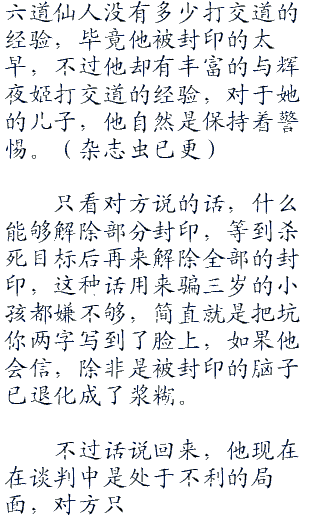 六道仙人没有多少打交道的
经验，毕竟他被封印的太
早，不过他却有丰富的与辉
夜姬打交道的经验，对于她
的儿子，他自然是保持着警
惕。（杂志虫已更）
只看对方说的话，什么
能够解除部分封印，等到杀
死目标后再来解除全部的封
印，这种话用来骗三岁的小
孩都嫌不够，简直就是把坑
你两字写到了脸上，如果他
会信，除非是被封印的脑子
已退化成了浆糊。
不过话说回来，他现在
在谈判中是处于不利的局
面，对方只